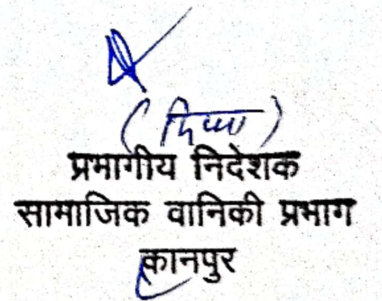 प्रभागीय निदेशक
सामाजिक वानिकी प्रभाग
कानपुर